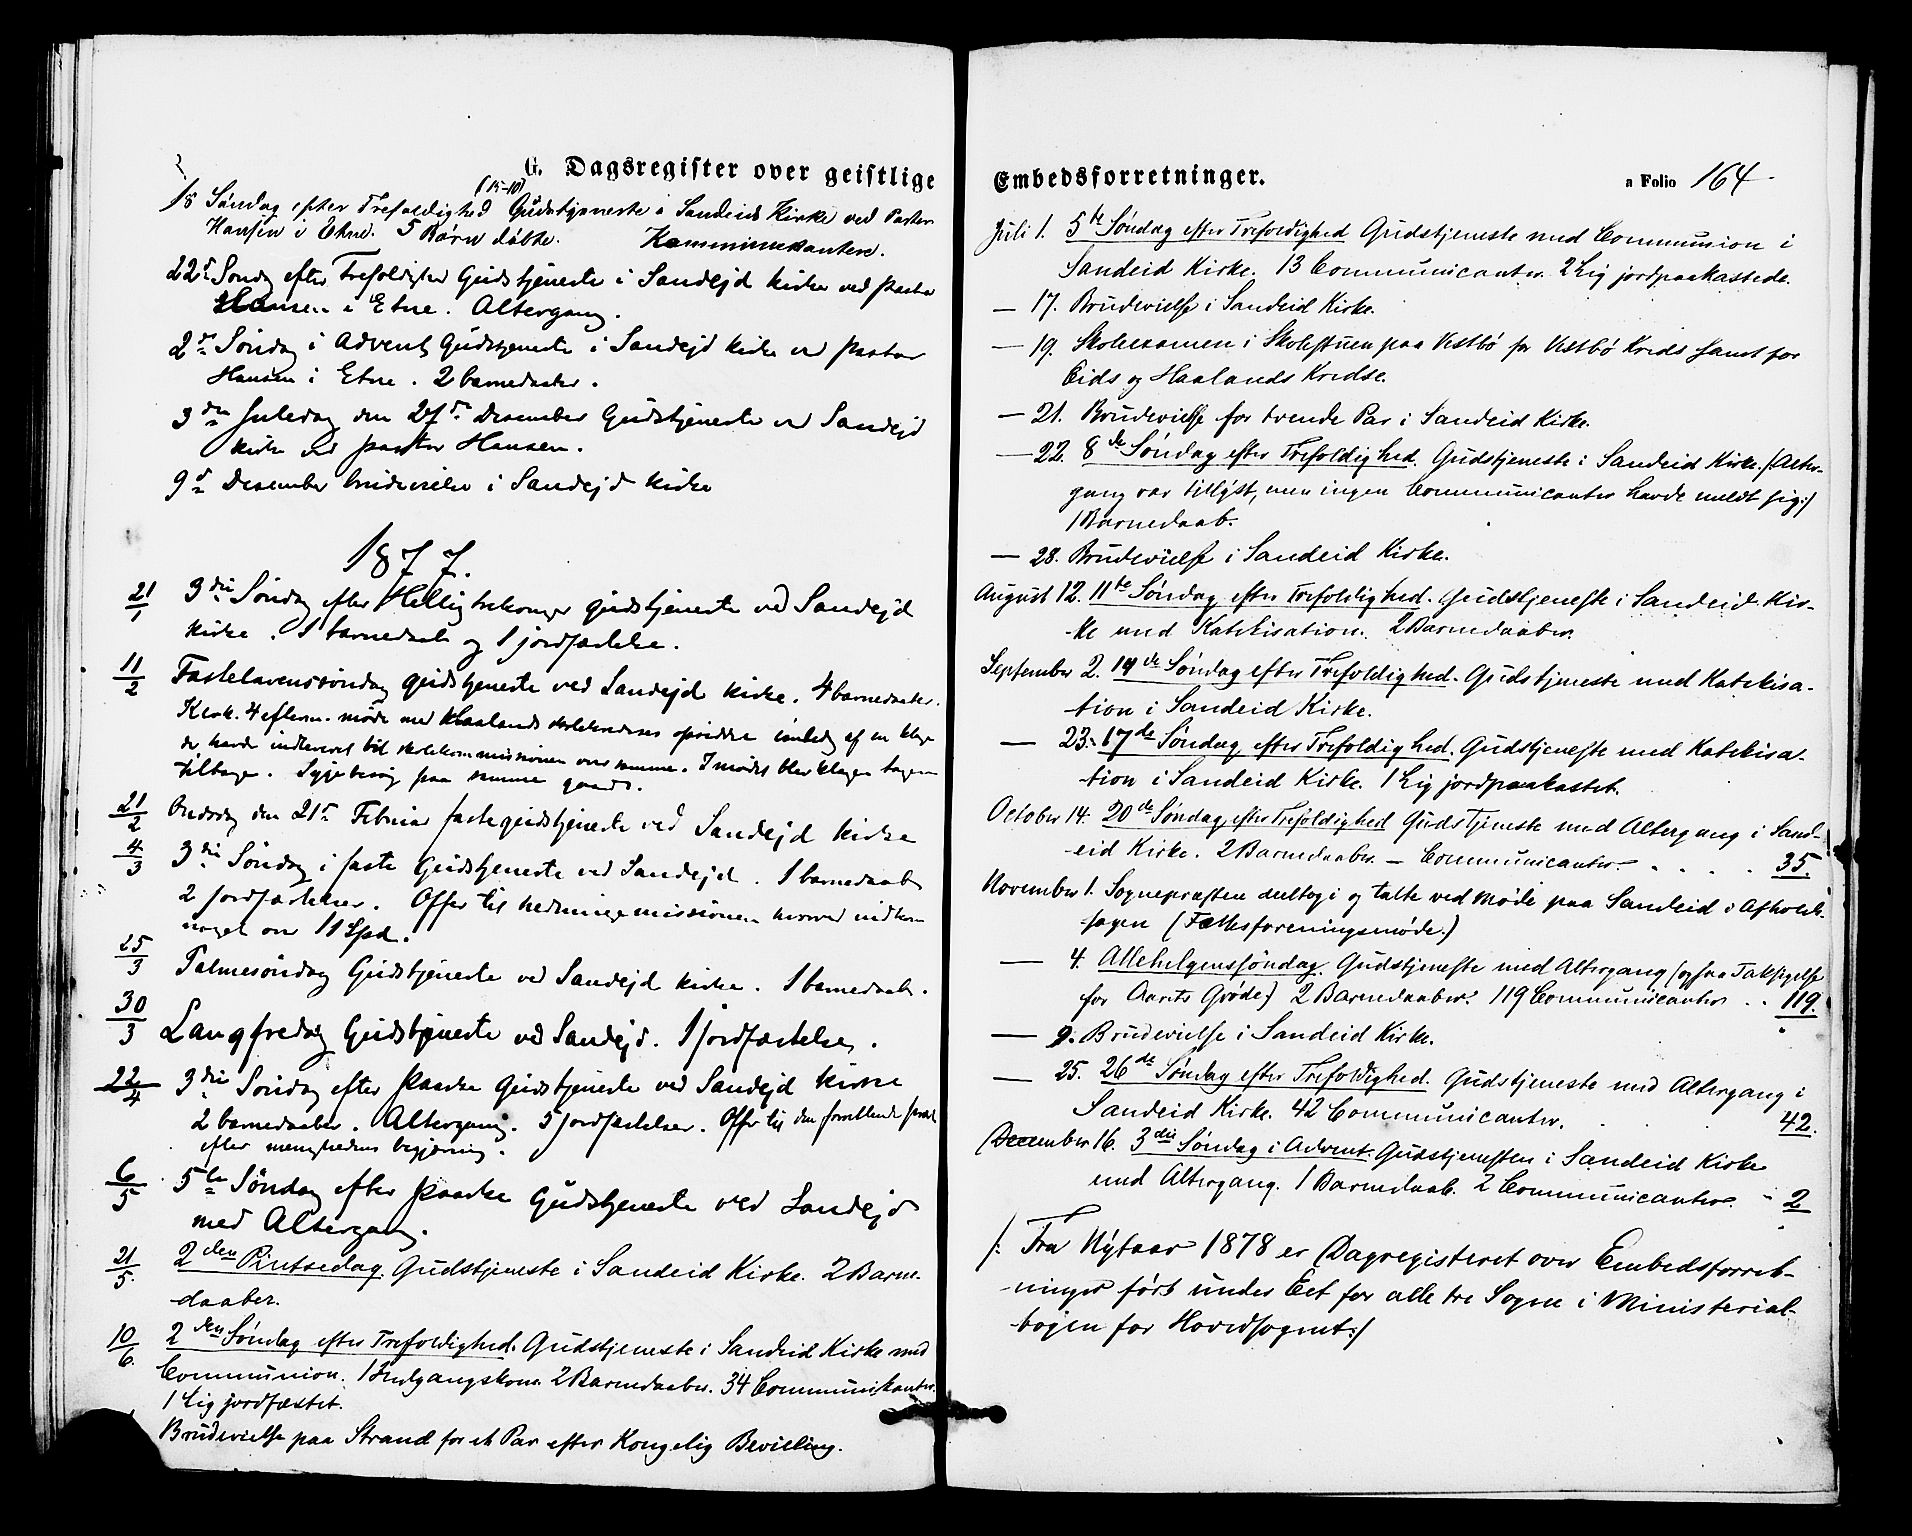 G. Dagsregister over geistlige
(15-10)
18 Søndag efter Trefoldighed Gudstjeneste i Sandeid Kirke ved Pastor
Hansen i Etne. 5 Børn døbte. Kommunikantere.
22de Søndg efter Trefoldighed Gudstjeneste i Sandejd kirke ved pastor
Hansen i Etne. Altergang.
2den Søndag i Advent Gudstjeneste i Sandejd kirke ved pastor
Hansen i Etne. 2 barnedaaber.
3die Juledag den 27de Desember Gudstjeneste ved Sandejd
kirke ved pastor Hansen.
9de Desember brudevielse i Sandejd kirke
1877.
21/1 3die Søndag efter Hellig trekonger gudstjeneste ved Sandejd
kirke. 1 barnedaab og 1 jordfæstelse.
11/2 Fastelavenssøndag gudstjeneste ved Sandejd kirke. 4 barnedaaber.
Klok. 4 efterm. møde med Haalands skolekredses opsiddere i anledg af en klage
de havde indleveret til skolekommissionen over samme. I mødet blev klagen tagen
tilbage. Sygebesøg paa samme gaard.
21/2 Onsdag den 21de Februar fastegudstjeneste ved Sandejd kirke
4/3 3die Søndag i faste Gudstjeneste ved Sandejd. 1 barnedaab
2 jordfæstelser. Offer til hedningemissionen hvorved indkom
noget over 11 Spd.
25/3 Palmesøndag Gudstjeneste ved Sandejd kirke. 1 barnedaab.
30/3 Langfredag Gudstjeneste ved Sandejd. 1 jordfæstelse.
22/4 3die Søndag efter paaske Gudstjeneste ved Sandejd kirke
2 barnedaaber. Altergang. 5 jordfæstelser. Offer til den forrettende præst
efter menighedens begjæring.
6/5 5te Søndag efter paaske Gudstjeneste ved Sandejd
med Altergang.
21/5 2den Pintsedag. Gudstjeneste i Sandeid Kirke. 2 Barne-
daaber.
10/6. 2den Søndag efter Trefoldighed. Gudstjeneste i Sandeid Kirke med
Communion. 1 Indgangskone. 2 Barnedaaber. 34 Communikanter.
1 Lig jordfæstet.
Brudevielse paa Strand for et Par efter Kongelig Bevilling.
Embedsforretninger.
a Folio 164
Juli 1. 5te Søndag efter Trefoldighed Gudstjeneste med Communion i
Sandeid Kirke. 13 Communicanter. 2 Lig jordpaakastede.
— 17. Brudevielse i Sandeid Kirke.
— 19. Skoleexamen i Skolestuen paa Vestbø for Vestbø Kreds samt for
Eids og Haalands Kredse.
— 21. Brudevielse for tvende Par i Sandeid Kirke.
— 22. 8de Søndag efter Trefoldighed. Gudstjeneste i Sandeid Kirke. /:Alter-
gang var tillyst, men ingen Communicanter havde meldt sig:/
1 Barnedaab.
— 28. Brudevielse i Sandeid Kirke.
August 12. 11te Søndag efter Trefoldighed. Gudstjeneste i Sandeid Kir-
ke med Katekisation. 2 Barnedaaber.
September 2. 14de Søndag efter Trefoldighed. Gudstjeneste med Katekisa-
tion i Sandeid Kirke.
— 23. 17de Søndag efter Trefoldighed. Gudstjeneste med Katekisa-
tion i Sandeid Kirke. 1 Lig jordpaakastet.
October 14. 20de Søndag efter Trefoldighed Gudstjeneste med Altergang i Sand-
eid Kirke. 2 Barnedaaber. — Communicanter. . . . . 35.
November 1. Sognepræsten deltog i og talte ved Møde paa Sandeid i Afholds-
sagen (Fællesforeningsmøde.)
— 4. Allehelgenssøndag. Gudstjeneste med Altergang (ogsaa Taksigelse
for Aarets Grøde) 2 Barnedaaber. 119 Communicanter . . 119.
— 9. Brudevielse i Sandeid Kirke.
— 25. 26de Søndag efter Trefoldighed. Gudstjeneste med Altergang i
Sandeid Kirke. 42 Communicanter. . . 42.
December 16. 3die Søndag i Advent. Gudstjenesten i Sandeid Kirke
med Altergang. 1 Barnedaab. 2 Communicanter. - 2
/: Fra Nytaar 1878 er Dagregisteret over Embedsforret-
ninger ført under Eet for alle tre Sogne i Ministerial-
bogen for Hovedsognet:/